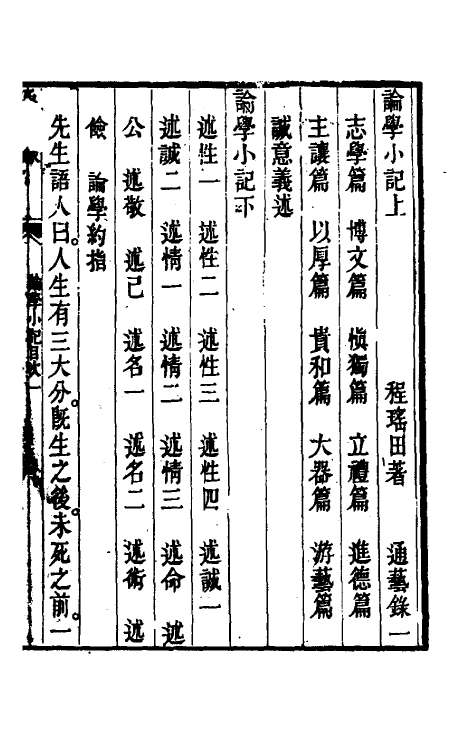 論學小記上　程瑤田著　通藝錄一
志學篇　博文篇　愼獨篇　立禮篇　進德篇
主讓篇　以厚篇　貴和篇　大器篇　游藝篇
誠意義述
論學小記下
述性一　述性二　述性三　述性四　述誠一
述誠二　述情一　述情二　述情三　述命　述
公　述敬　述己　述名一　述名二　述術　述
儉　論學約指
先生語人曰。人生有三大分。旣生之後。未死之前。一
論學小記目次一